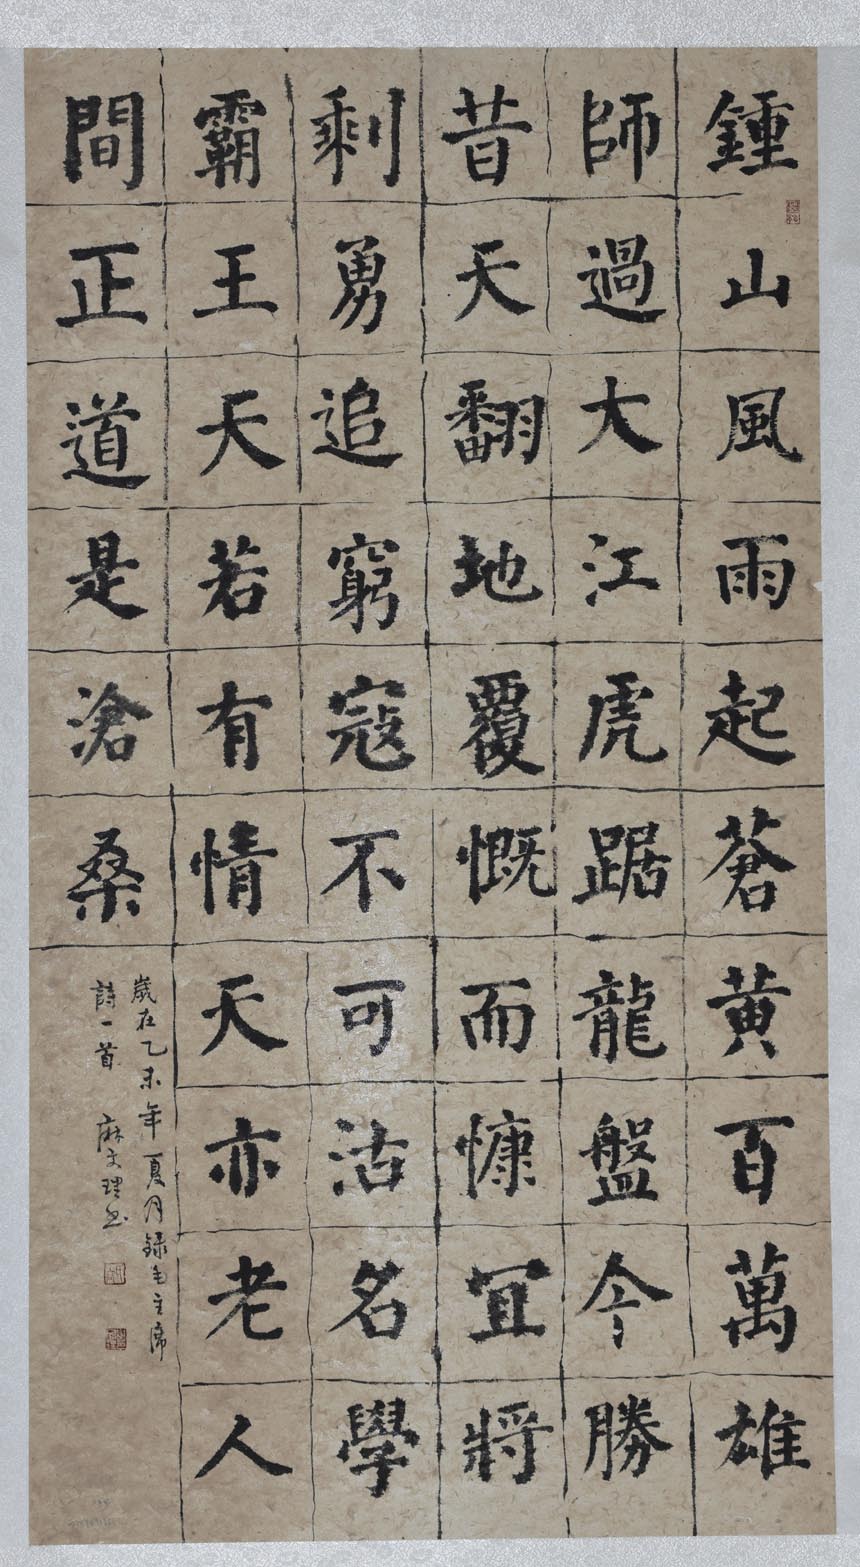 鍾山風雨起蒼黄百萬雄
師過大江虎踞龍盤今勝
昔天翻地覆慨而慷宜將
剩勇追窮寇不可沽名學
霸王天若有情天亦老人
間正道是滄桑
歲在乙未年夏月録毛主席
詩一首 麻文理书